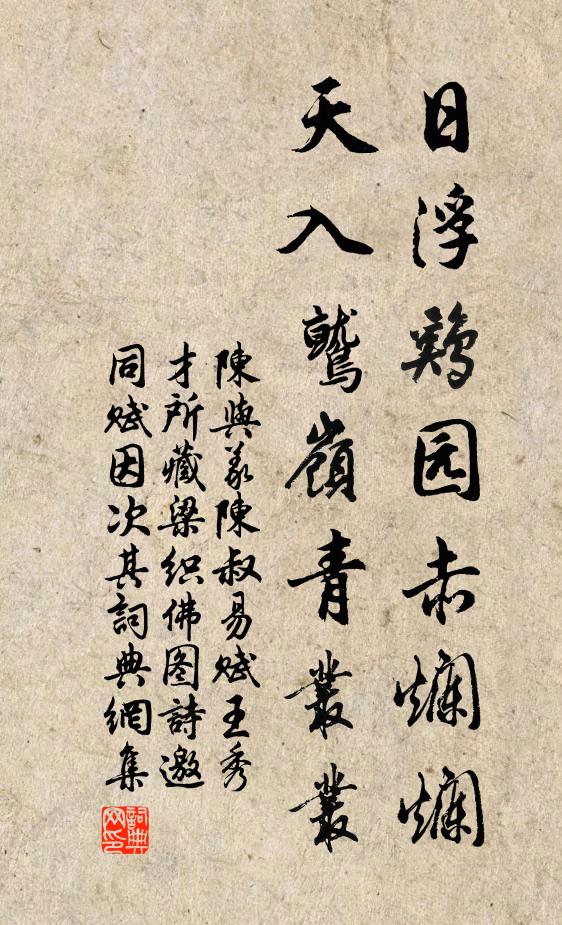 日浮鸡园赤爛爛
天入鷲嶺青叢叢
陳與義陳叔易賦王秀
才所藏梁织佛图詩邀
同賦因次其詞典網集
詞典网印